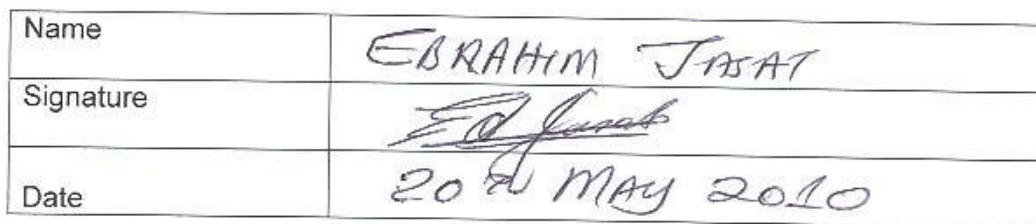 Name EBRAHIM JASAT
Signature Ed Jasat
Date 20TH MAY 2010